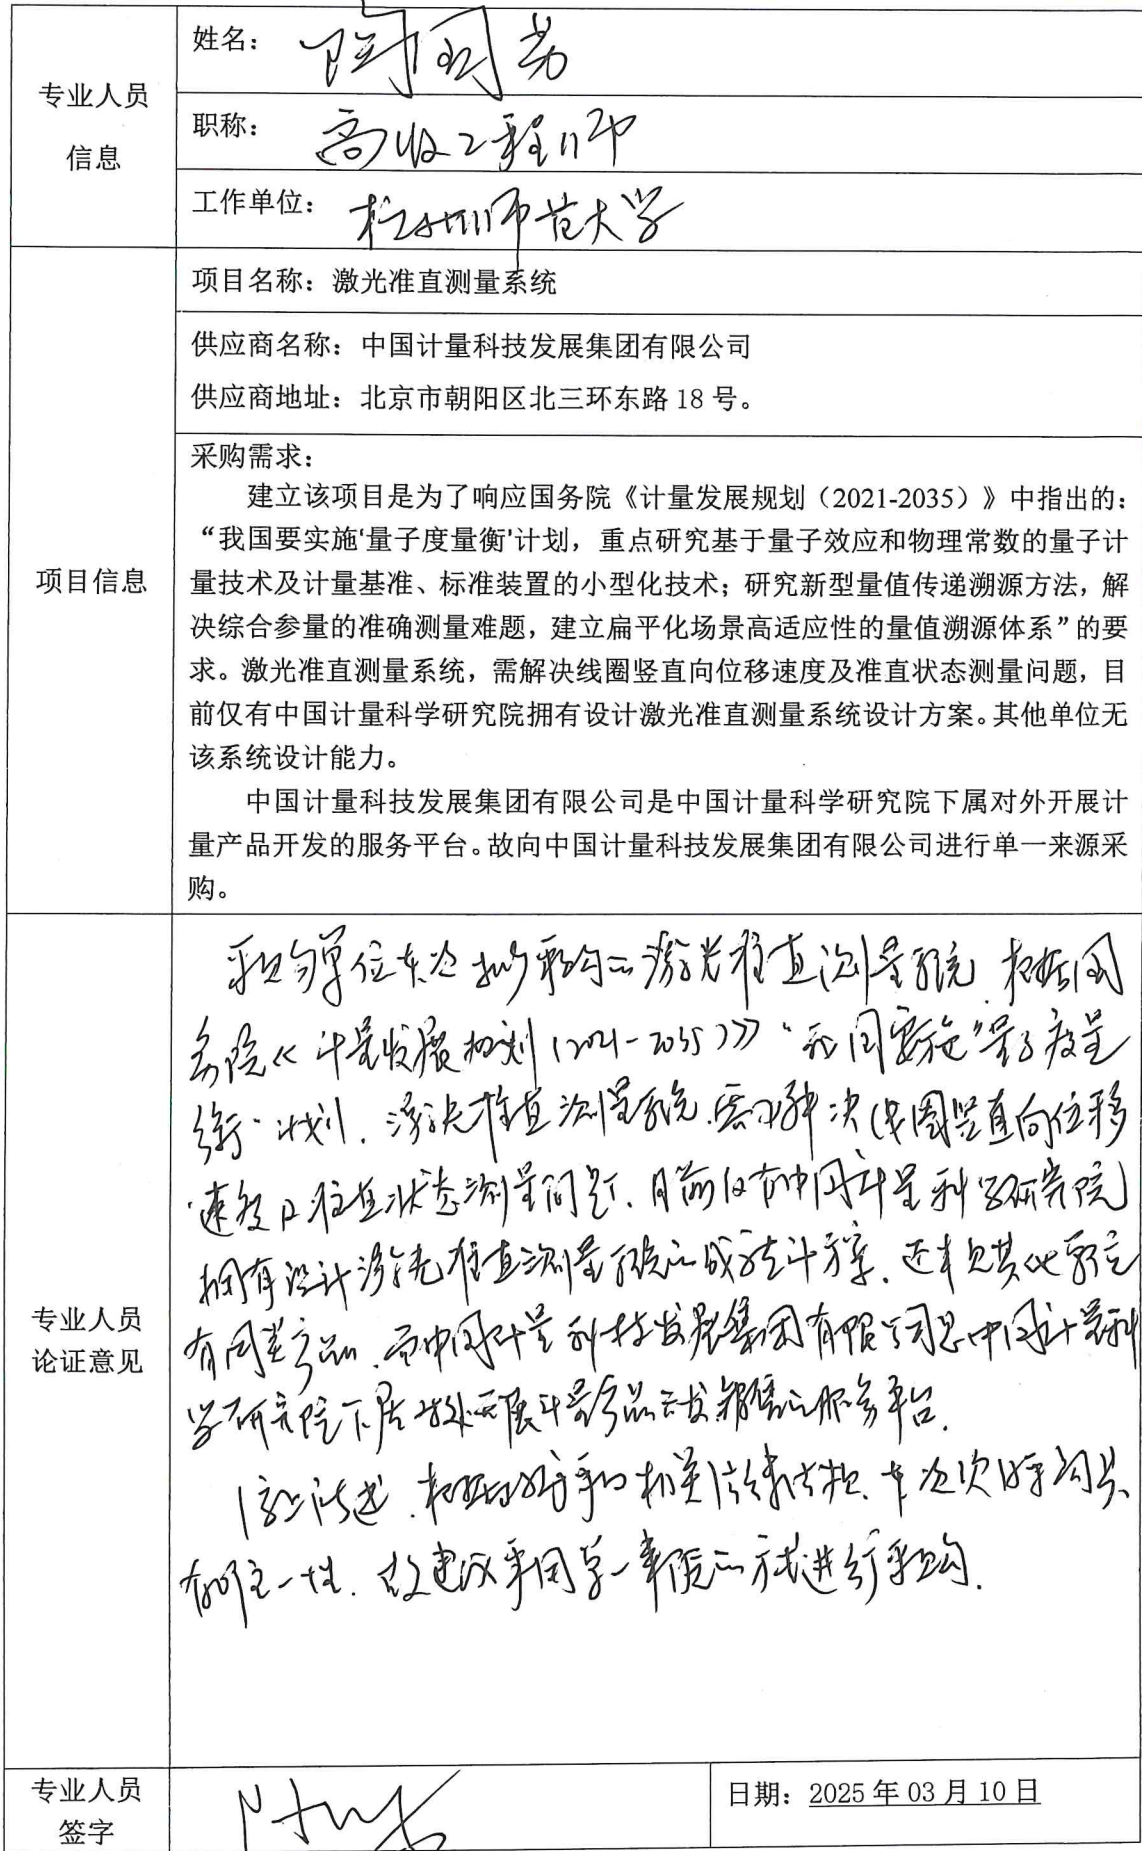 专业人员
信息
姓名：陶国芳
职称：高级工程师
工作单位：杭州师范大学
项目信息
项目名称：激光准直测量系统
供应商名称：中国计量科技发展集团有限公司
供应商地址：北京市朝阳区北三环东路 18 号。
采购需求：
建立该项目是为了响应国务院《计量发展规划（2021-2035）》中指出的：
“我国要实施‘量子度量衡’计划，重点研究基于量子效应和物理常数的量子计
量技术及计量基准、标准装置的小型化技术；研究新型量值传递溯源方法，解
决综合参量的准确测量难题，建立扁平化场景高适应性的量值溯源体系”的要
求。激光准直测量系统，需解决线圈竖直向位移速度及准直状态测量问题，目
前仅有中国计量科学研究院拥有设计激光准直测量系统设计方案。其他单位无
该系统设计能力。
中国计量科技发展集团有限公司是中国计量科学研究院下属对外开展计
量产品开发的服务平台。故向中国计量科技发展集团有限公司进行单一来源采
购。
专业人员
论证意见
采购单位本次拟采购的激光准直测量系统，根据国
务院《计量发展规划（2021-2035）》“我国要实施“量子度量
衡”计划，激光准直测量系统，需求解决线圈竖直向位移
速度及准直状态测量问题，目前仅有中国计量科学研究院
拥有设计激光准直测量系统的成熟设计方案，还未见其他单位
有同类产品，而中国计量科技发展集团有限公司是中国计量科
学研究院下属对外开展计量产品开发销售的服务平台。
综上所述，根据政府采购相关法律法规，本次采购具
有唯一性，故建议采用单一来源的方式进行采购。
专业人员
签字
日期：2025 年 03 月 10 日